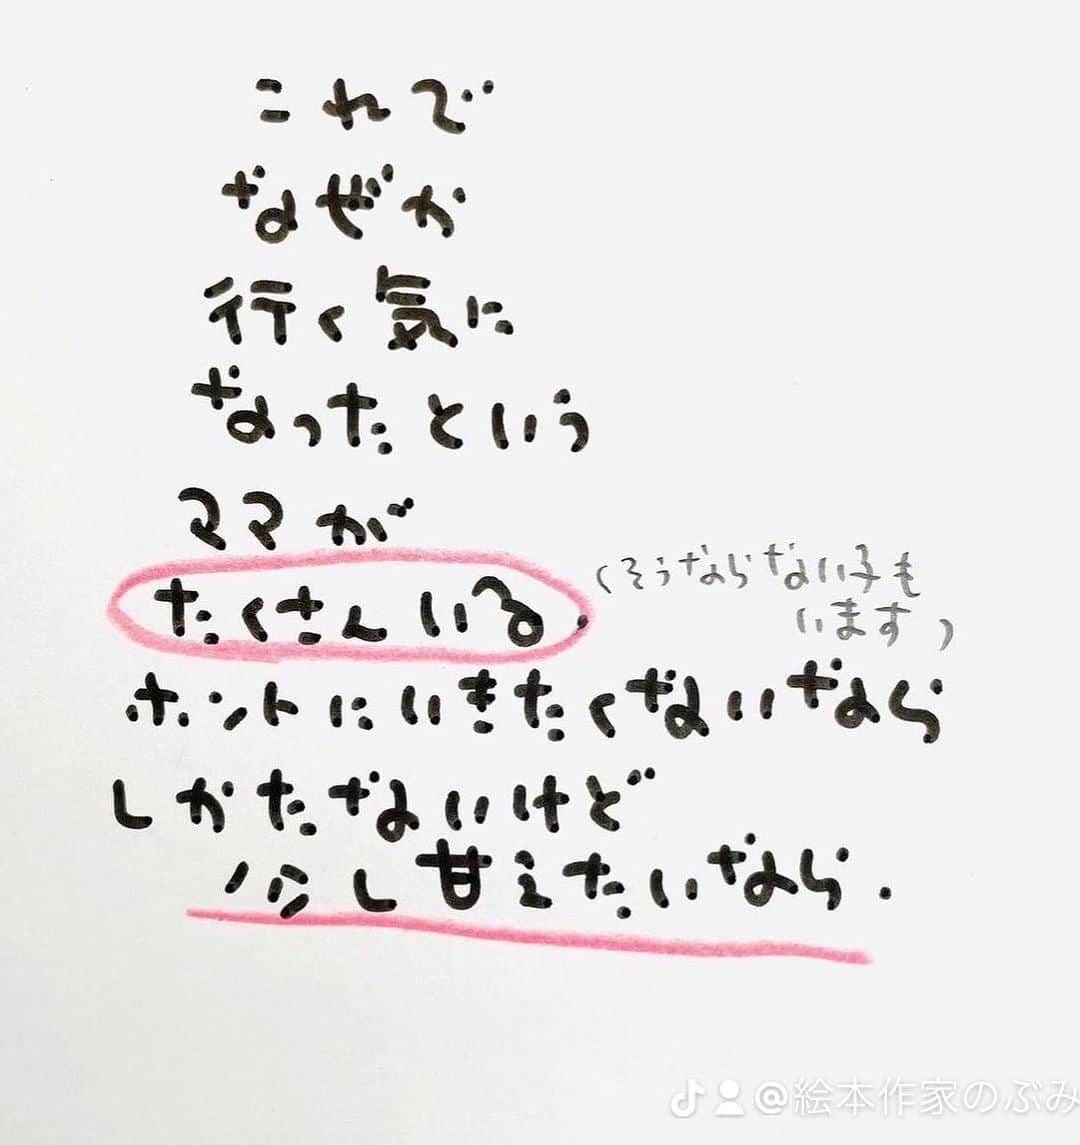 これで
なぜか
行く気に
なったという
ママが
たくさんいる.
(そうならない子も
います)
ホントにいきたくないなら
しかたないけど
少し甘えたいなら.
@絵本作家のぶみ